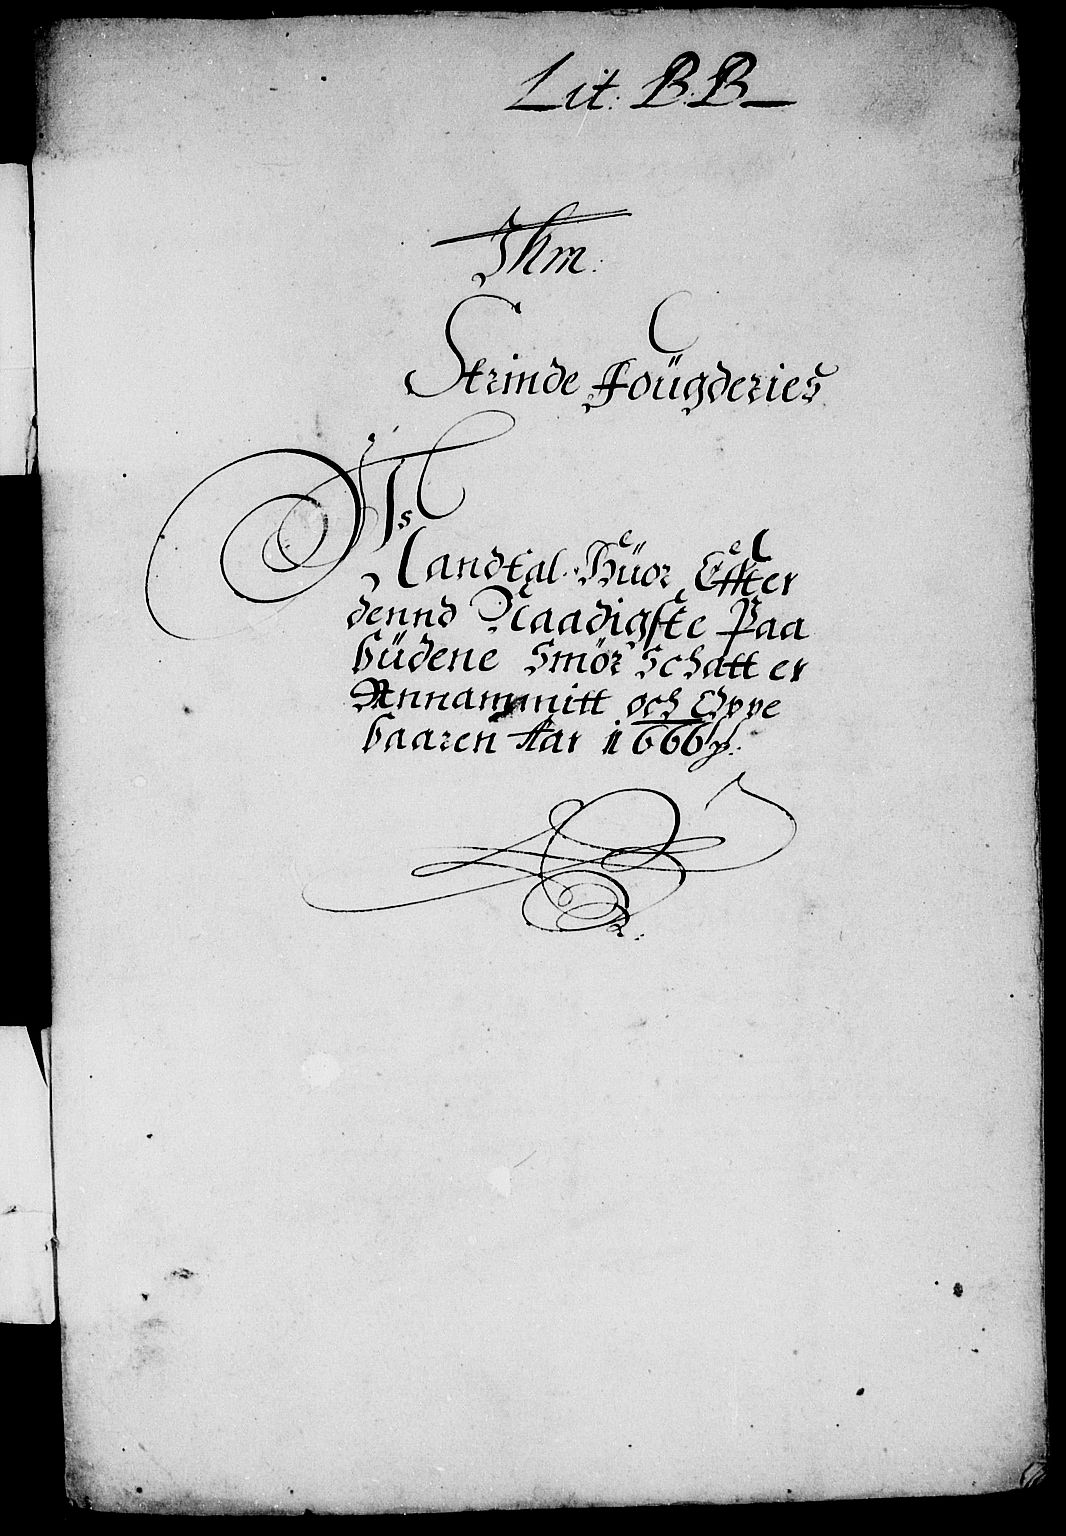 Lit: B.B
Strinde Foügderies
Mandtal Hüor Effter
dennd Naadigste Paa
büdene Smör Schatt er
Annammitt och Oppe
baaren Aar 1666